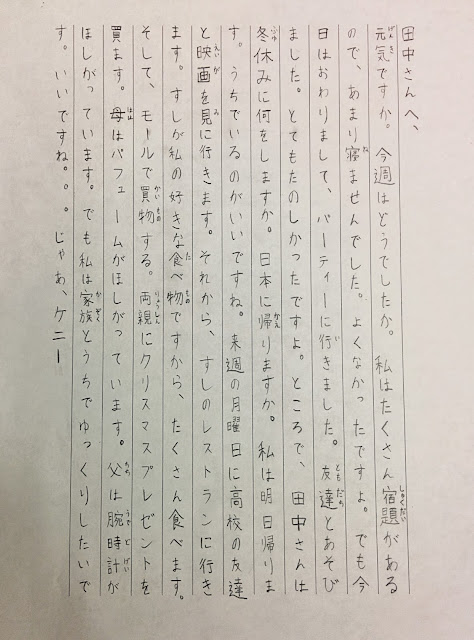 田中さんへ、
元気ですか。今週はどうでしたか。私はたくさん宿題がある
ので、あまり寝ませんでした。よくなかったですよ。でも今
日はおわりまして、パーティーに行きました。友達とあそび
ました。とてもたのしかったですよ。ところで、田中さんは
冬休みに何をしますか。日本に帰りますか。私は明日帰りま
す。うちでいるのがいいですね。来週の月曜日に高校の友達
と映画を見に行きます。それから、すしのレストランに行き
ます。すしが私の好きな食べ物ですから、たくさん食べます。
そして、モールで買物する。両親にクリスマスプレゼントを
買ます。母はパフュームがほしがっています。父は腕時計が
ほしがっています。でも私は家族とうちでゆっくりしたいで
す。いいですね。。。じゃあ、ケニー